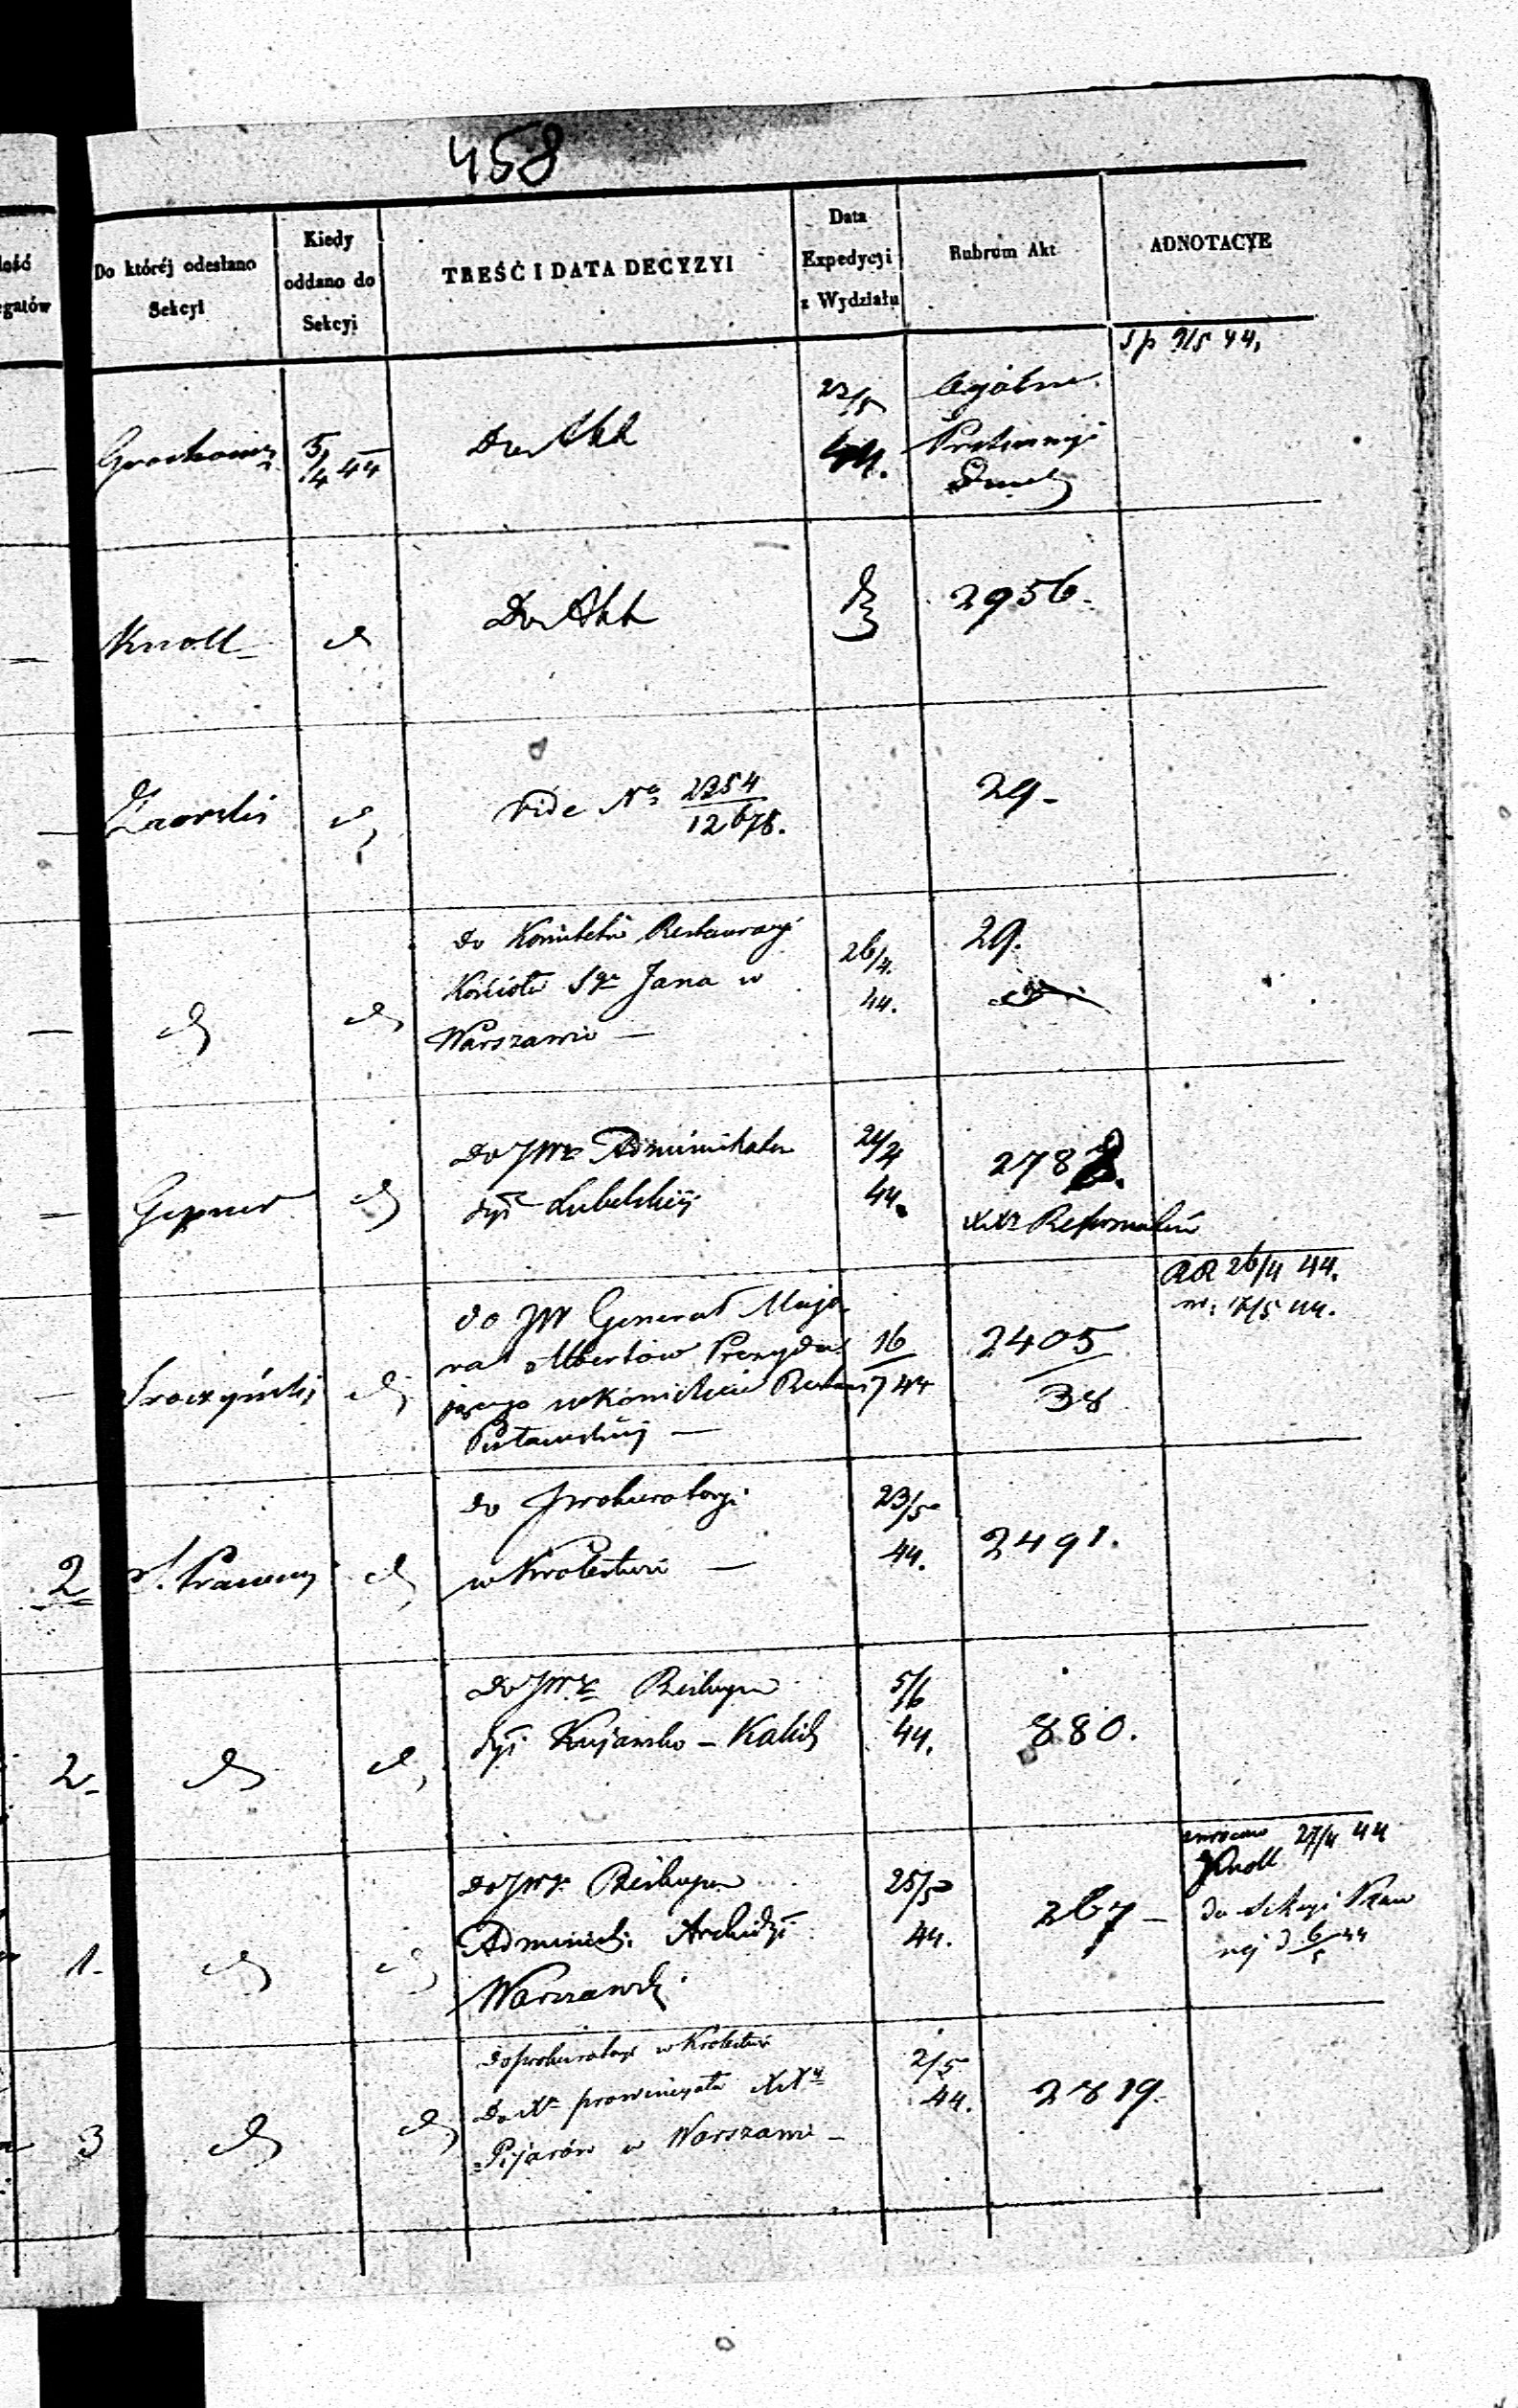 458
Do któréj odesłano
Sekcyi
Kiedy
oddano do
Sekcyi
TREŚĆ I DATA DECYZYI
Data
Expedycyi
z Wydziału
Rubrum Akt
ADNOTACYE
Sp 9/5 44,
5/4 44
Do Akt
22/5
44.
Knoll
Do Akt
2956
Vide No 2254
12678.
29
do Komitetu Restauracyi
Kościoła Sgo Jana w
Warszawie
26/4
44.
29.
Gepner
do JWX Administratora
Dyi Lubelskiej
24/4
44.
278
XXz Reformatów
RR 26/4 44.
17/5 44.
Sroczyński
do JW Generał Majo
ra Albertów Prezydu
jącego w Komitecie
Pułtuskiej
16
7 44
2405
38
2
S. Prawny
do Prokuratoryi
w Królestwie
23/5
44.
2491.
2
do JWX Biskupa
Dyi Kujawsko - Kalis
5/6
44.
880.
1
do JWX Biskupa
Administr. Archidyi
Warszawsk.
25/5
44.
267
zwrócono 27/4 44
Knoll
do Sekcyi Praw
nej d 6/5 44
3
do prokuratoryi w Królestwie
Do Xa prowincyała XXy
Pijarów w Warszawie
2/5
44.
2819.